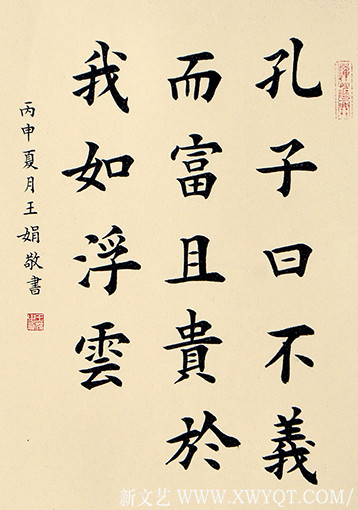 孔子曰不義
而富且貴於
我如浮雲
丙申夏月王娟敬書
新文艺 WWW.XWYQT.COM/